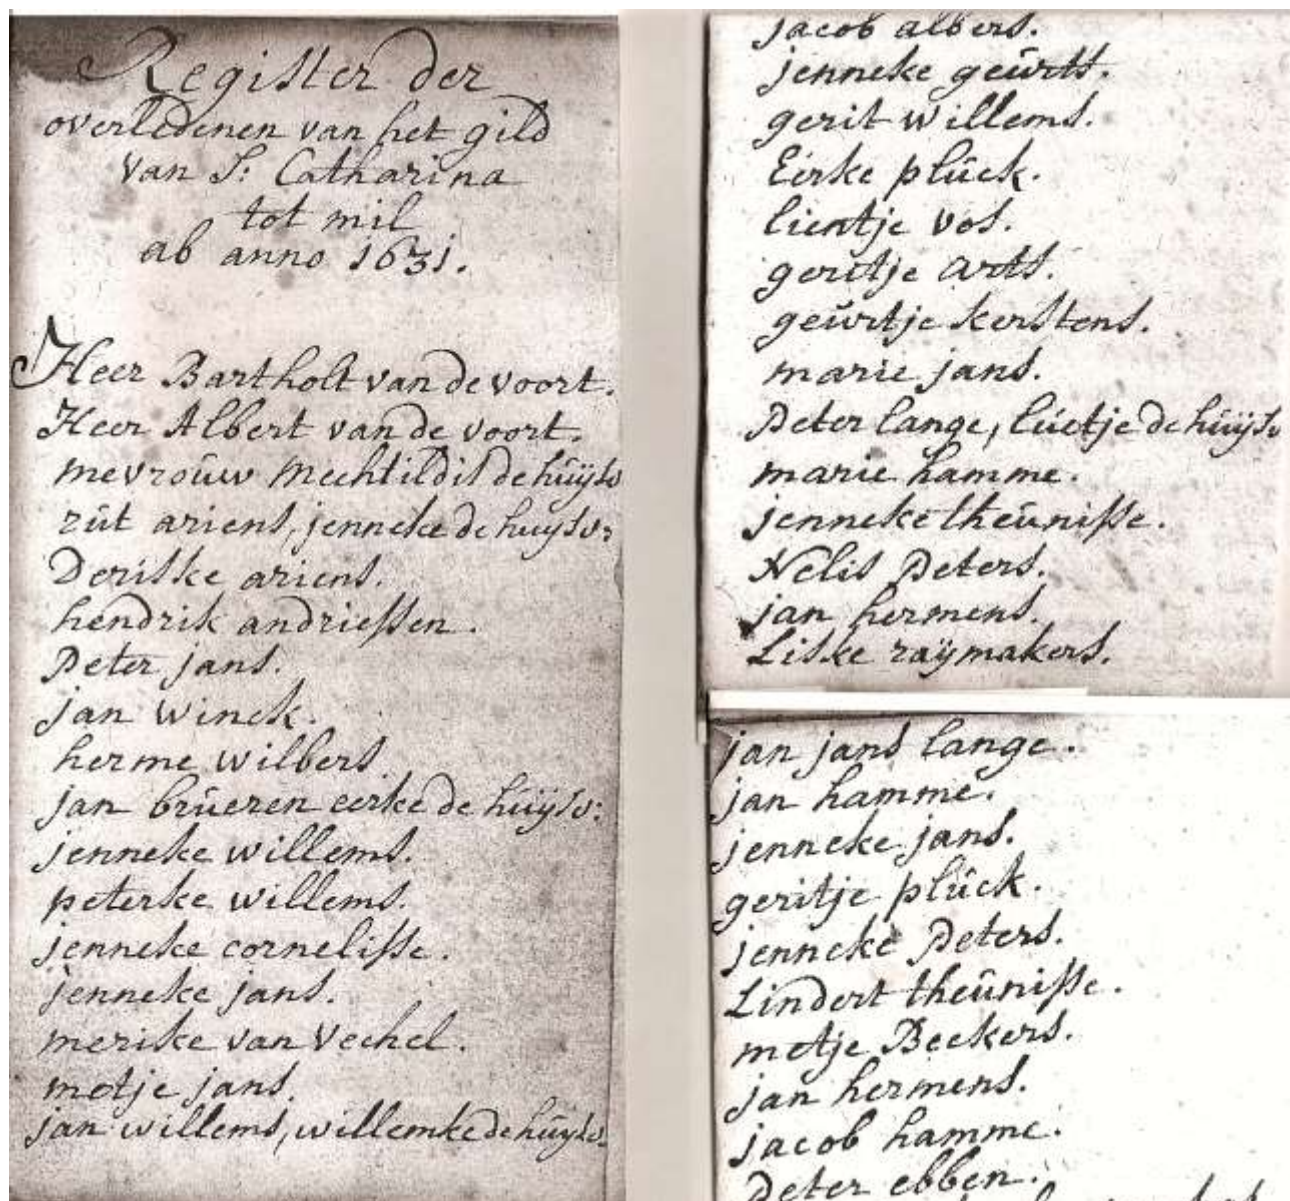 Register der
overledenen van het gild
van S: Catharina
tot mil
ab anno 1631.
Heer Bartholt van de voort.
Heer Albert van de voort.
mevroŭw Mechtildis de hŭijsv
rŭt ariens, jenneke de huijsv:
Deriske ariens.
hendrik andriessen.
Peter jans.
jan winck.
herme wilbers.
jan brŭeren eerke de hŭijsv:
jenneke willems.
peterke willems.
jenneke cornelisse.
jenneke jans.
merike van Vechel.
metje jans.
jan willems, willemke de hŭijsv.
jacob albers.
jenneke geŭrts.
gerit willems.
Eerke plŭck.
lientje vos.
geritje arts.
geŭrtje kerstens.
marie jans.
Peter lange, lŭetje de hŭijsv
marie hamme.
jenneke theŭnisse.
Nelis Peters.
jan hermens.
Liske raijmakers.
jan jans lange.
jan hamme.
jenneke jans.
geritje plŭck.
jenneke Peters.
Lindert theŭnisse.
metje Beckers.
jan hermens.
jacob hamme.
Peter ebben.